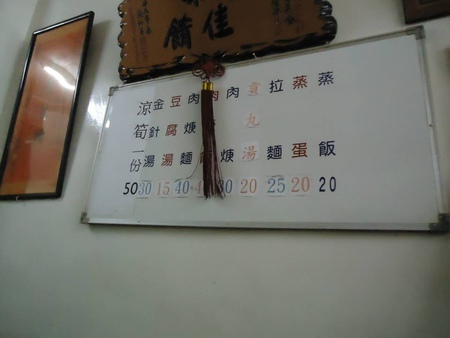 蒸飯 20
蒸蛋 20
拉麵 25
貢丸湯 20
肉焿 30
肉
肉焿麵 40
豆腐湯 15
金針湯 30
涼筍一份 50
佳